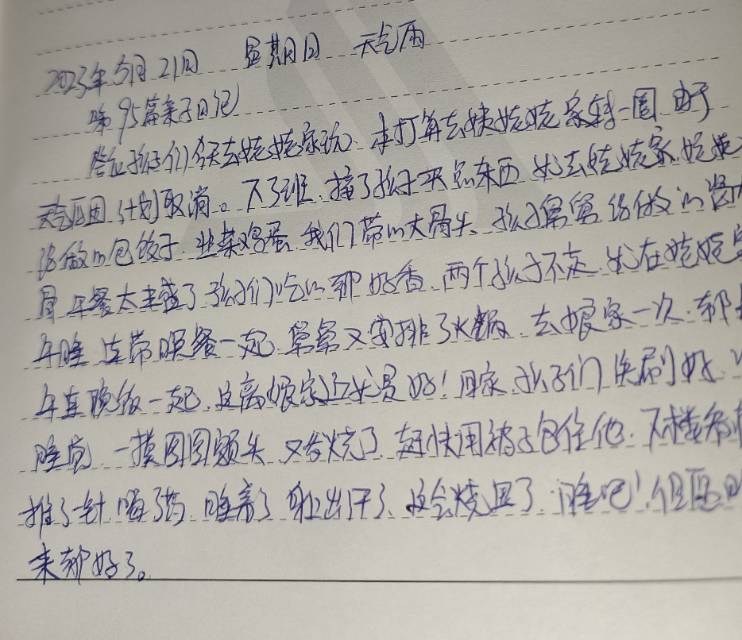 2023年5月21日 星期日 天气雨
第95篇亲子日记
答应孩子们今天去姥姥家玩，本打算去姨姥姥家转一圈 由于
天气原因，计划取消。下了班，接了孩子买点东西 就去姥姥家 姥姥
给做的包饺子 韭菜鸡蛋 我们带的大骨头 孩子舅舅给做的
骨 午餐太丰盛了 孩子们吃的那好香，两个孩子不走，就在姥姥
午睡 连带晚餐一起，舅舅又安排了火锅，去娘家一次，都
午连晚饭一起，这离娘家近就是好！回家，孩子们洗刷好，
睡觉 一摸图图额头 又发烧了 赶快用被子包住他，下楼
推了针 喝了药 睡着了 出汗了，这会烧退了，睡吧！但愿
来都好了。